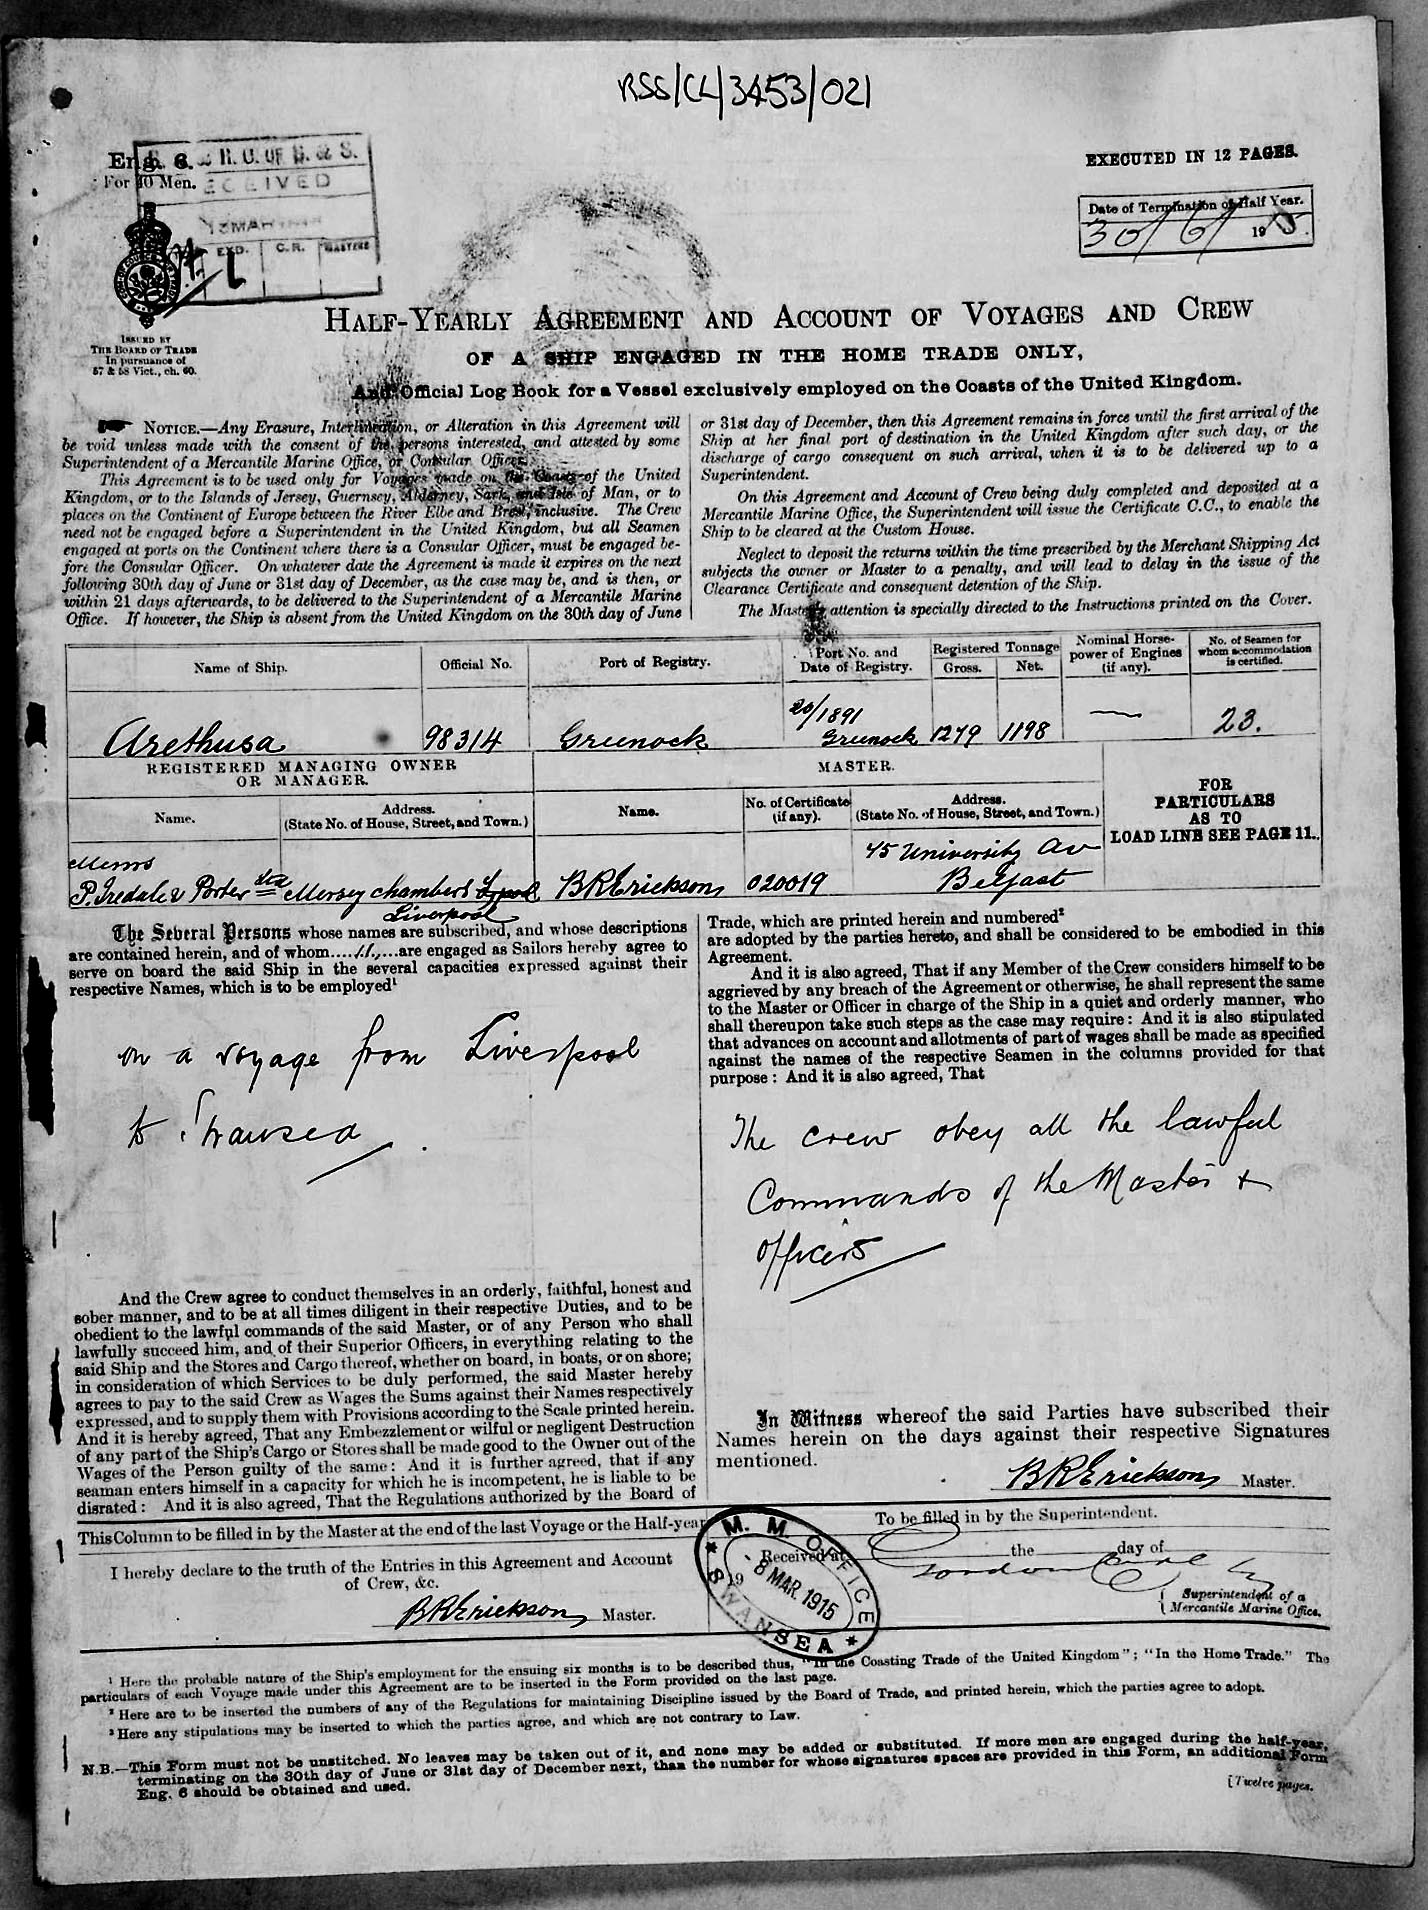 RSS/CL/3453/021
Eng. 6.
For 40 Men.
R. G. OF S. & S.
RECEIVED
EXD. C.R. MASTERS
EXECUTED IN 12 PAGES.
Date of Termination of Half Year.
30/6/ 1915.
ISSUED BY
THE BOARD OF TRADE
In pursuance of
57 & 58 Vict., ch. 60.
HALF-YEARLY AGREEMENT AND ACCOUNT OF VOYAGES AND CREW
OF A SHIP ENGAGED IN THE HOME TRADE ONLY,
And Official Log Book for a Vessel exclusively employed on the Coasts of the United Kingdom.
NOTICE.—Any Erasure, Interlineation, or Alteration in this Agreement will
be void unless made with the consent of the persons interested, and attested by some
Superintendent of a Mercantile Marine Office, or Consular Officer.
This Agreement is to be used only for Voyages made on the Coasts of the United
Kingdom, or to the Islands of Jersey, Guernsey, Alderney, Sark, and Isle of Man, or to
places on the Continent of Europe between the River Elbe and Brest, inclusive. The Crew
need not be engaged before a Superintendent in the United Kingdom, but all Seamen
engaged at ports on the Continent where there is a Consular Officer, must be engaged be-
fore the Consular Officer. On whatever date the Agreement is made it expires on the next
following 30th day of June or 31st day of December, as the case may be, and is then, or
within 21 days afterwards, to be delivered to the Superintendent of a Mercantile Marine
Office. If however, the Ship is absent from the United Kingdom on the 30th day of June
or 31st day of December, then this Agreement remains in force until the first arrival of the
Ship at her final port of destination in the United Kingdom after such day, or the
discharge of cargo consequent on such arrival, when it is to be delivered up to a
Superintendent.
On this Agreement and Account of Crew being duly completed and deposited at a
Mercantile Marine Office, the Superintendent will issue the Certificate C.C., to enable the
Ship to be cleared at the Custom House.
Neglect to deposit the returns within the time prescribed by the Merchant Shipping Act
subjects the owner or Master to a penalty, and will lead to delay in the issue of the
Clearance Certificate and consequent detention of the Ship.
The Master's attention is specially directed to the Instructions printed on the Cover.
Name of Ship. Official No. Port of Registry. Port No. and Date of Registry. Registered Tonnage Gross. Net. Nominal Horse-power of Engines (if any). No. of Seamen for whom accommodation is certified.
20/1891
Arethusa 98314 Greenock Greenock 1279 1198 — 23.
REGISTERED MANAGING OWNER
OR MANAGER.
MASTER.
Name. Address. (State No. of House, Street, and Town.) Name. No. of Certificate (if any). Address. (State No. of House, Street, and Town.)
FOR
PARTICULARS
AS TO
LOAD LINE SEE PAGE 11.
Messrs 45 University Av
P. Iredale & Porter Ltd Mersey Chambers L'pool BRErickson 020019 Belfast
Liverpool
The Several Persons whose names are subscribed, and whose descriptions
are contained herein, and of whom.....11.....are engaged as Sailors hereby agree to
serve on board the said Ship in the several capacities expressed against their
respective Names, which is to be employed¹
on a voyage from Liverpool
to Swansea.
And the Crew agree to conduct themselves in an orderly, faithful, honest and
sober manner, and to be at all times diligent in their respective Duties, and to be
obedient to the lawful commands of the said Master, or of any Person who shall
lawfully succeed him, and of their Superior Officers, in everything relating to the
said Ship and the Stores and Cargo thereof, whether on board, in boats, or on shore;
in consideration of which Services to be duly performed, the said Master hereby
agrees to pay to the said Crew as Wages the Sums against their Names respectively
expressed, and to supply them with Provisions according to the Scale printed herein.
And it is hereby agreed, That any Embezzlement or wilful or negligent Destruction
of any part of the Ship's Cargo or Stores shall be made good to the Owner out of the
Wages of the Person guilty of the same: And it is further agreed, that if any
seaman enters himself in a capacity for which he is incompetent, he is liable to be
disrated: And it is also agreed, That the Regulations authorized by the Board of
Trade, which are printed herein and numbered²
are adopted by the parties hereto, and shall be considered to be embodied in this
Agreement.
And it is also agreed, That if any Member of the Crew considers himself to be
aggrieved by any breach of the Agreement or otherwise, he shall represent the same
to the Master or Officer in charge of the Ship in a quiet and orderly manner, who
shall thereupon take such steps as the case may require: And it is also stipulated
that advances on account and allotments of part of wages shall be made as specified
against the names of the respective Seamen in the columns provided for that
purpose: And it is also agreed, That
The crew obey all the lawful
Commands of the Master &
officers
In Witness whereof the said Parties have subscribed their
Names herein on the days against their respective Signatures
mentioned.
BRErickson Master.
This Column to be filled in by the Master at the end of the last Voyage or the Half-year
I hereby declare to the truth of the Entries in this Agreement and Account
of Crew, &c.
BRErickson Master.
To be filled in by the Superintendent.
Received at the day of
19
Superintendent of a
Mercantile Marine Office.
M. M. OFFICE
8 MAR. 1915
SWANSEA
¹ Here the probable nature of the Ship's employment for the ensuing six months is to be described thus, "In the Coasting Trade of the United Kingdom"; "In the Home Trade." The
particulars of each Voyage made under this Agreement are to be inserted in the Form provided on the last page.
² Here are to be inserted the numbers of any of the Regulations for maintaining Discipline issued by the Board of Trade, and printed herein, which the parties agree to adopt.
³ Here any stipulations may be inserted to which the parties agree, and which are not contrary to Law.
N.B.—This Form must not be unstitched. No leaves may be taken out of it, and none may be added or substituted. If more men are engaged during the half-year,
terminating on the 30th day of June or 31st day of December next, than the number for whose signatures spaces are provided in this Form, an additional Form
Eng. 6 should be obtained and used.
[Twelve pages.